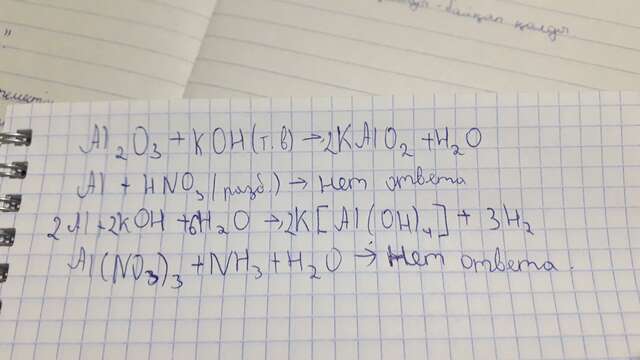 - байқап қалды
"
Al₂O₃ + KOH (т.в) → 2KAlO₂ + H₂O
Al + HNO₃ (разб.) → Нет ответа
2Al + 2KOH + 6H₂O → 2K[Al(OH)₄] + 3H₂
Al(NO₃)₃ + NH₃ + H₂O → Нет ответа.